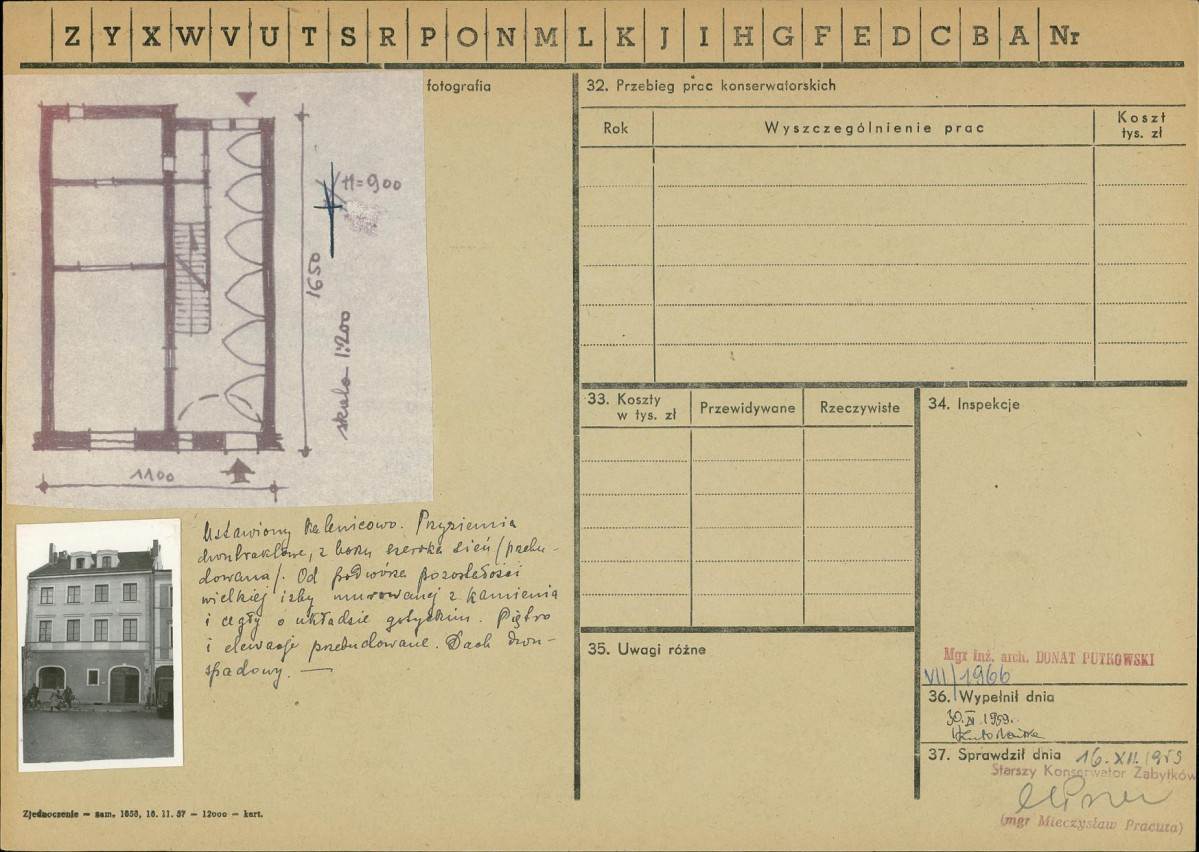 Z Y X W V U T S R P O N M L K J I H G F E D C B A Nr
fotografia
H=900
1650
skala 1:200
1100
Ustawiony kalenicowo. Przyziemia
dwutraktowe, z boku szeroka sień /przebu-
dowana/. Od podwórza pozostałości
wielkiej izby murowanej z kamienia
i cegły o układzie gotyckim. Piętro
i elewacje przebudowane. Dach dwu-
spadowy. —
Zjednoczenie — zam. 1653, 16. 11. 57 — 12000 — kart.
32. Przebieg prac konserwatorskich
Rok
Wyszczególnienie prac
Koszt
tys. zł
33. Koszty
w tys. zł
Przewidywane
Rzeczywiste
34. Inspekcje
Mgr inż. arch. DONAT PUTKOWSKI
VII/1966
35. Uwagi różne
36. Wypełnił dnia
30.XI.1959.
37. Sprawdził dnia 16.XII.1959
Starszy Konserwator Zabytków
(mgr Mieczysław Pracuta)